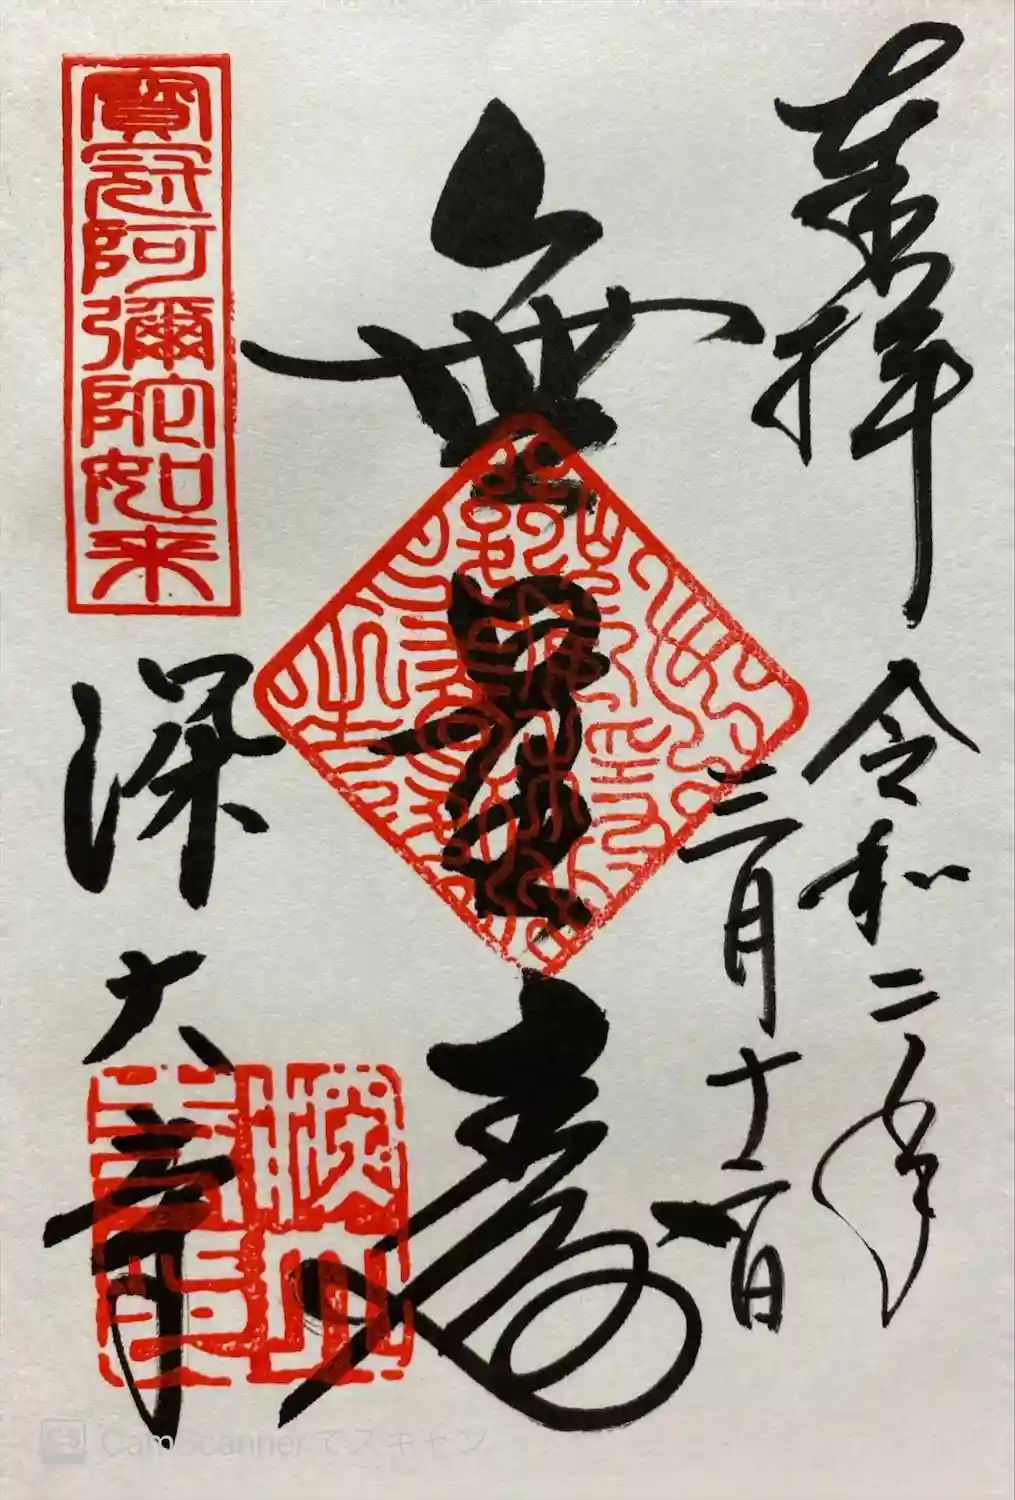 奉拝
令和二年
三月十一日
無量壽
寳冠阿彌陀如来
深大寺
CamScannerでスキャン